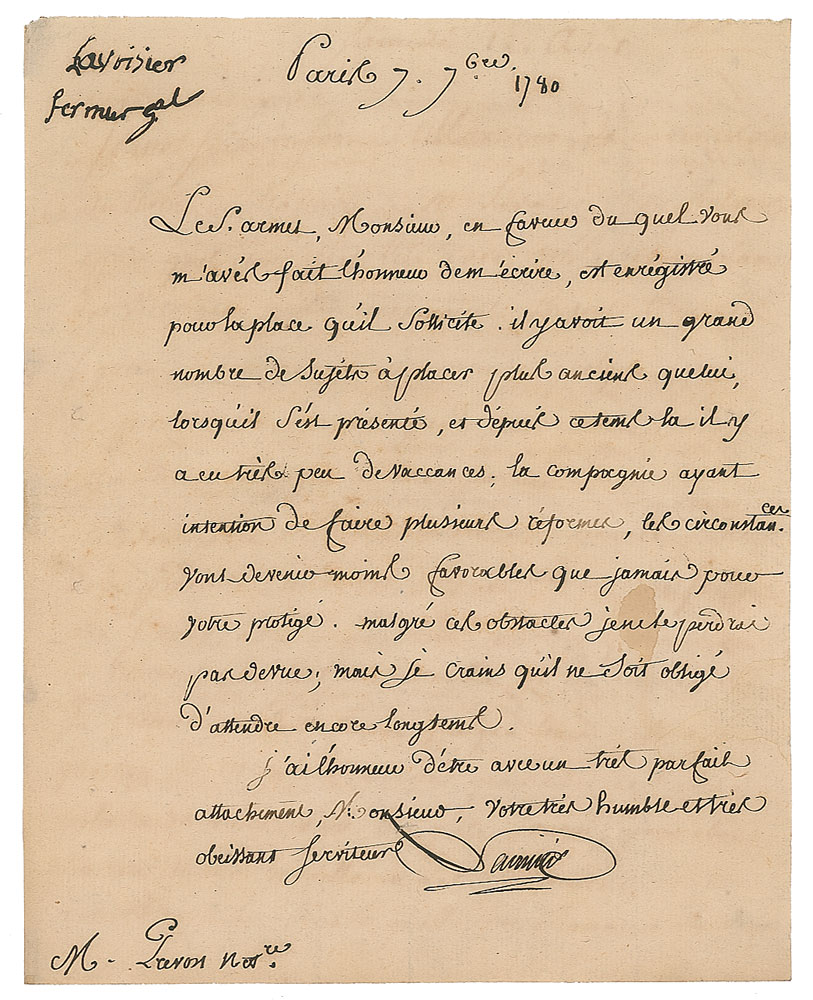 Lavoisier
fermier gal
Paris 7. 7bre. 1780
Le S. armet, Monsieur, en faveur du quel vous
m'avés fait l'honneur de m'écrire, est enrégistré
pour la place qu'il Sollicite. il y avoit un grand
nombre de Sujéts à placer plus anciens que lui,
lorsqu'il S'est présenté, et dépuis ce tems la il y
a eu très peu de vaccances; la compagnie ayant
intention de faire plusieurs réformes, les circonstances.
vont devenir moins favorables que jamais pour
votre protégé. malgré ces obstacles je ne le perdrai
pas de vue; mais je crains qu'il ne Soit obligé
d'attendre encore longtems.
j'ai l'honneur d'être avec un très parfait
attachement, Monsieur, votre très humble et très
obeissant Serviteur
Lavoisier
M. Prevost Nore.